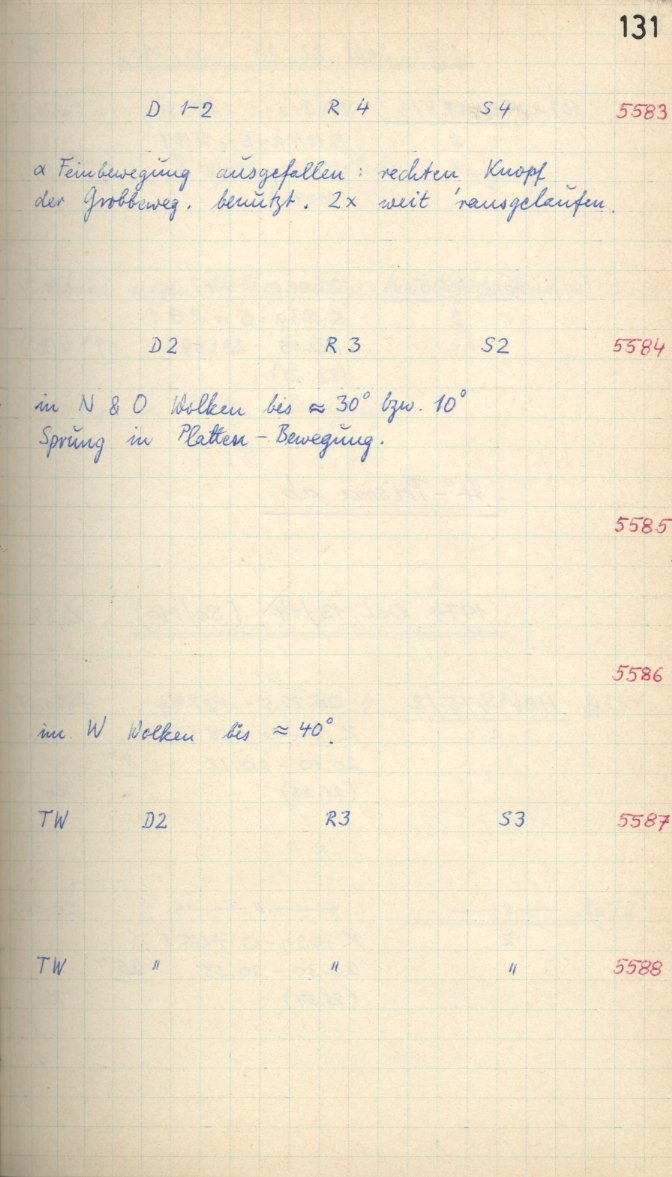 131
D 1-2 R 4 S 4 5583
α Feinbewegung ausgefallen: rechten Knopf
der Grobbeweg. benützt. 2x weit 'rausgelaufen.
D2 R 3 S2 5584
in N & O Wolken bis ≈ 30° bzw. 10°
Sprung in Platten-Bewegung.
5585
5586
im W Wolken bis ≈ 40°.
TW D2 R3 S3 5587
TW " " " 5588